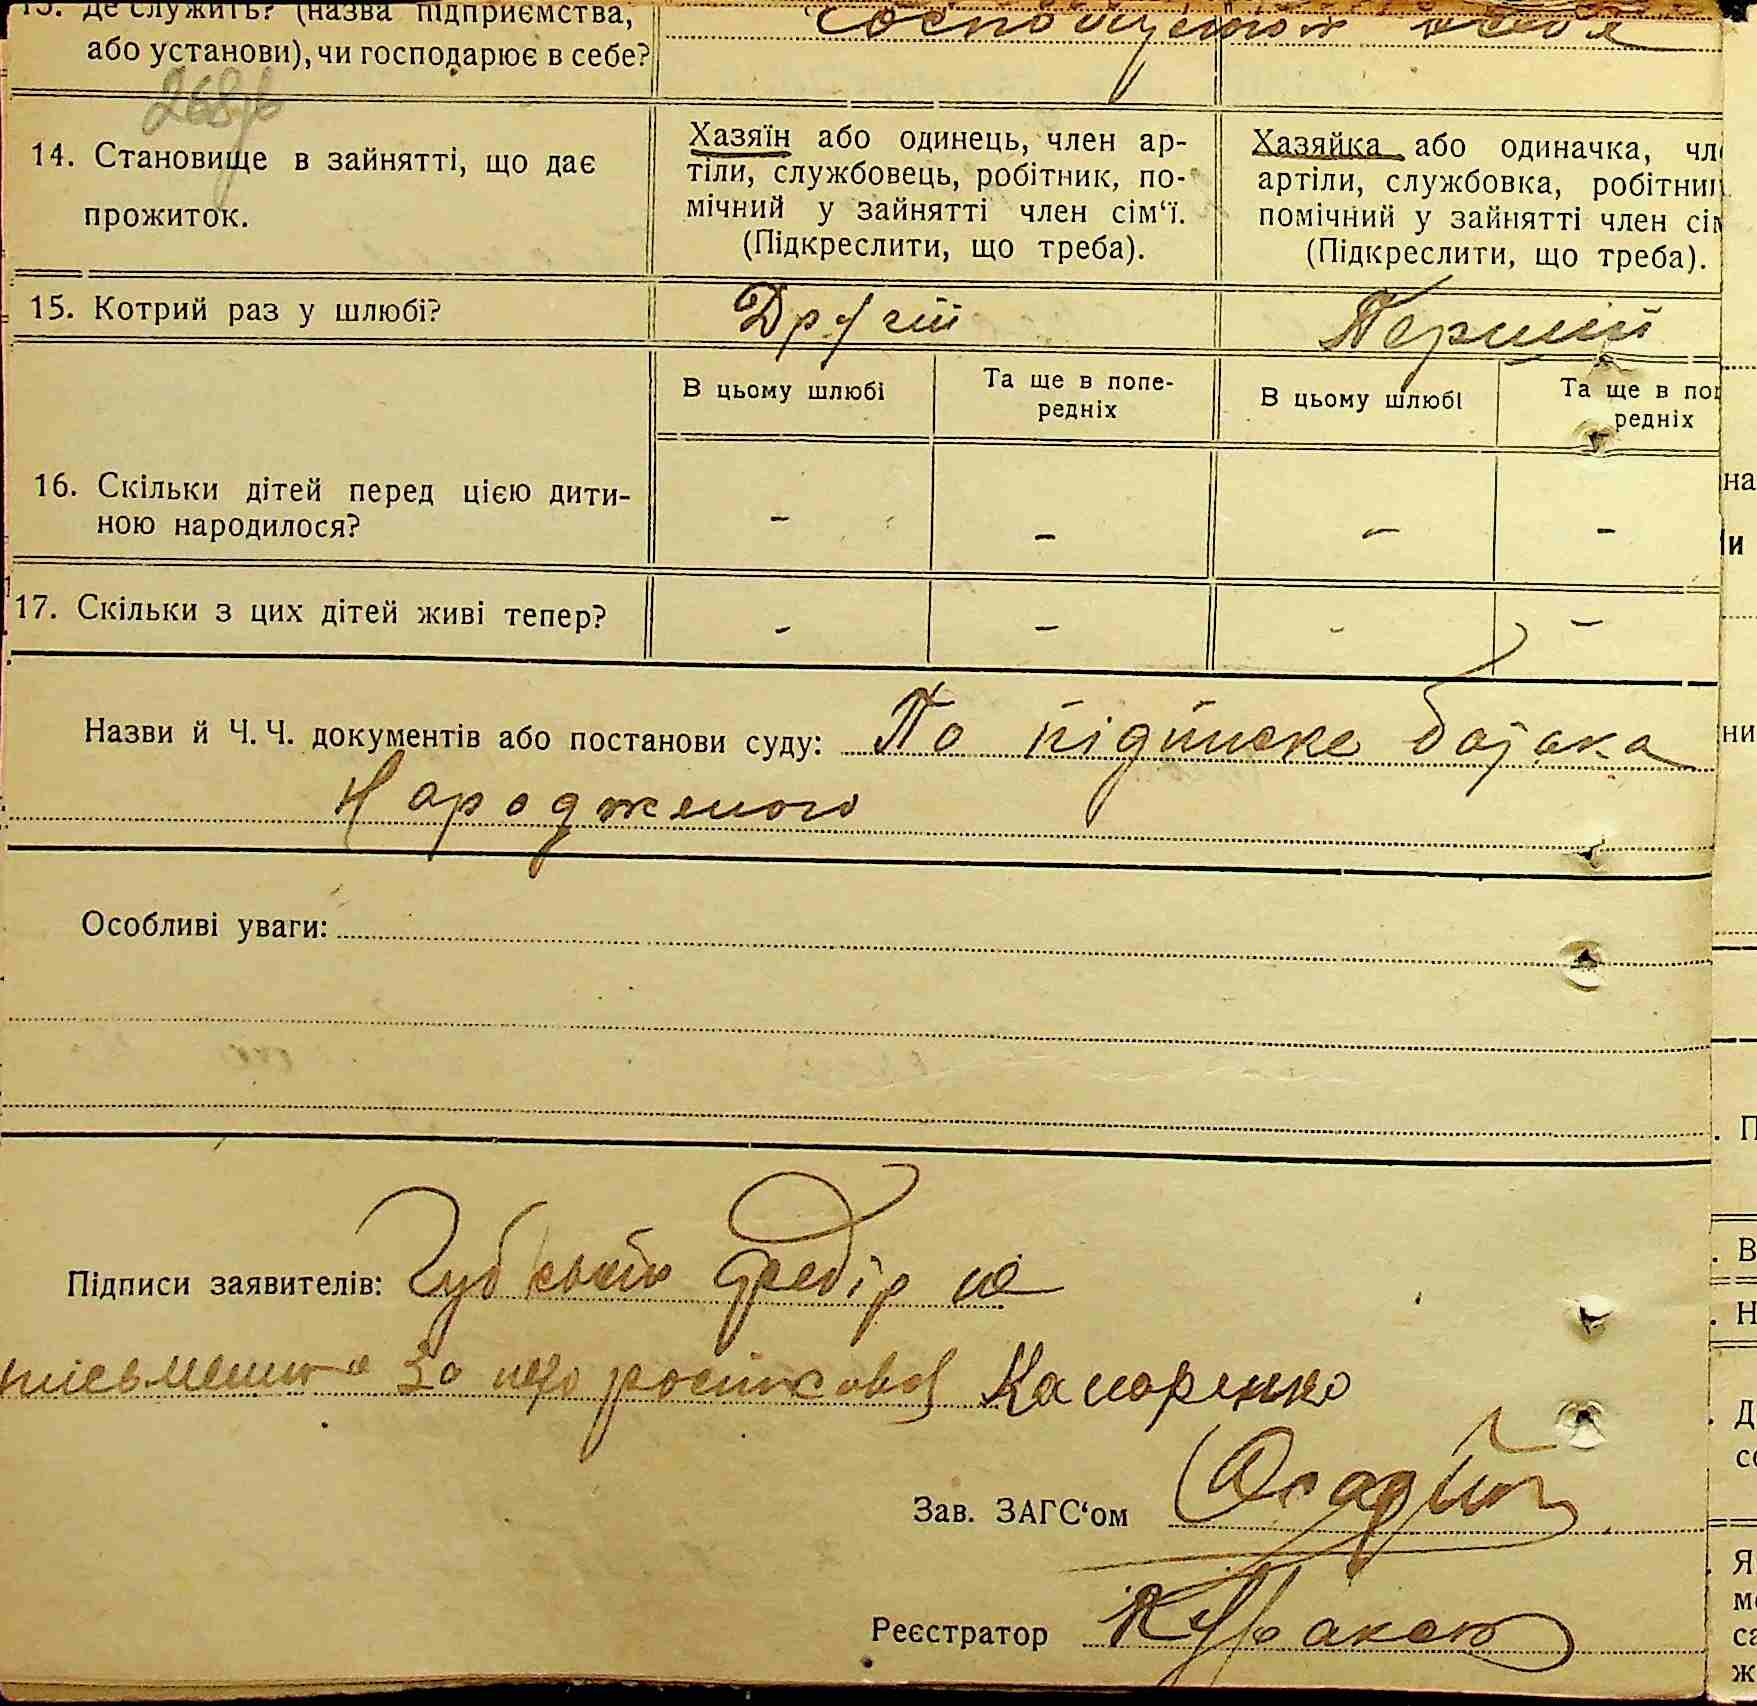 13. Де служить? (назва підприємства,
або установи), чи господарює в себе?
268
14. Становище в зайнятті, що дає
прожиток.
Хазяїн або одинець, член ар-
тіли, службовець, робітник, по-
мічний у зайнятті член сім‘ї.
(Підкреслити, що треба).
Хазяйка або одиначка, чл
артіли, службовка, робітниц
помічний у зайнятті член сім
(Підкреслити, що треба).
15. Котрий раз у шлюбі?
Другий
Перший
В цьому шлюбі
Та ще в попе-
редніх
В цьому шлюбі
Та ще в поп
редніх
16. Скільки дітей перед цією дити-
ною народилося?
- - - -
17. Скільки з цих дітей живі тепер?
- - - -
Назви й Ч. Ч. документів або постанови суду: По підписке батька
Народженого
Особливі уваги:
Підписи заявителів: Губський Федір не
письменний за его росписався Комаренко
Зав. ЗАГС‘ом Осадчий
Реєстратор